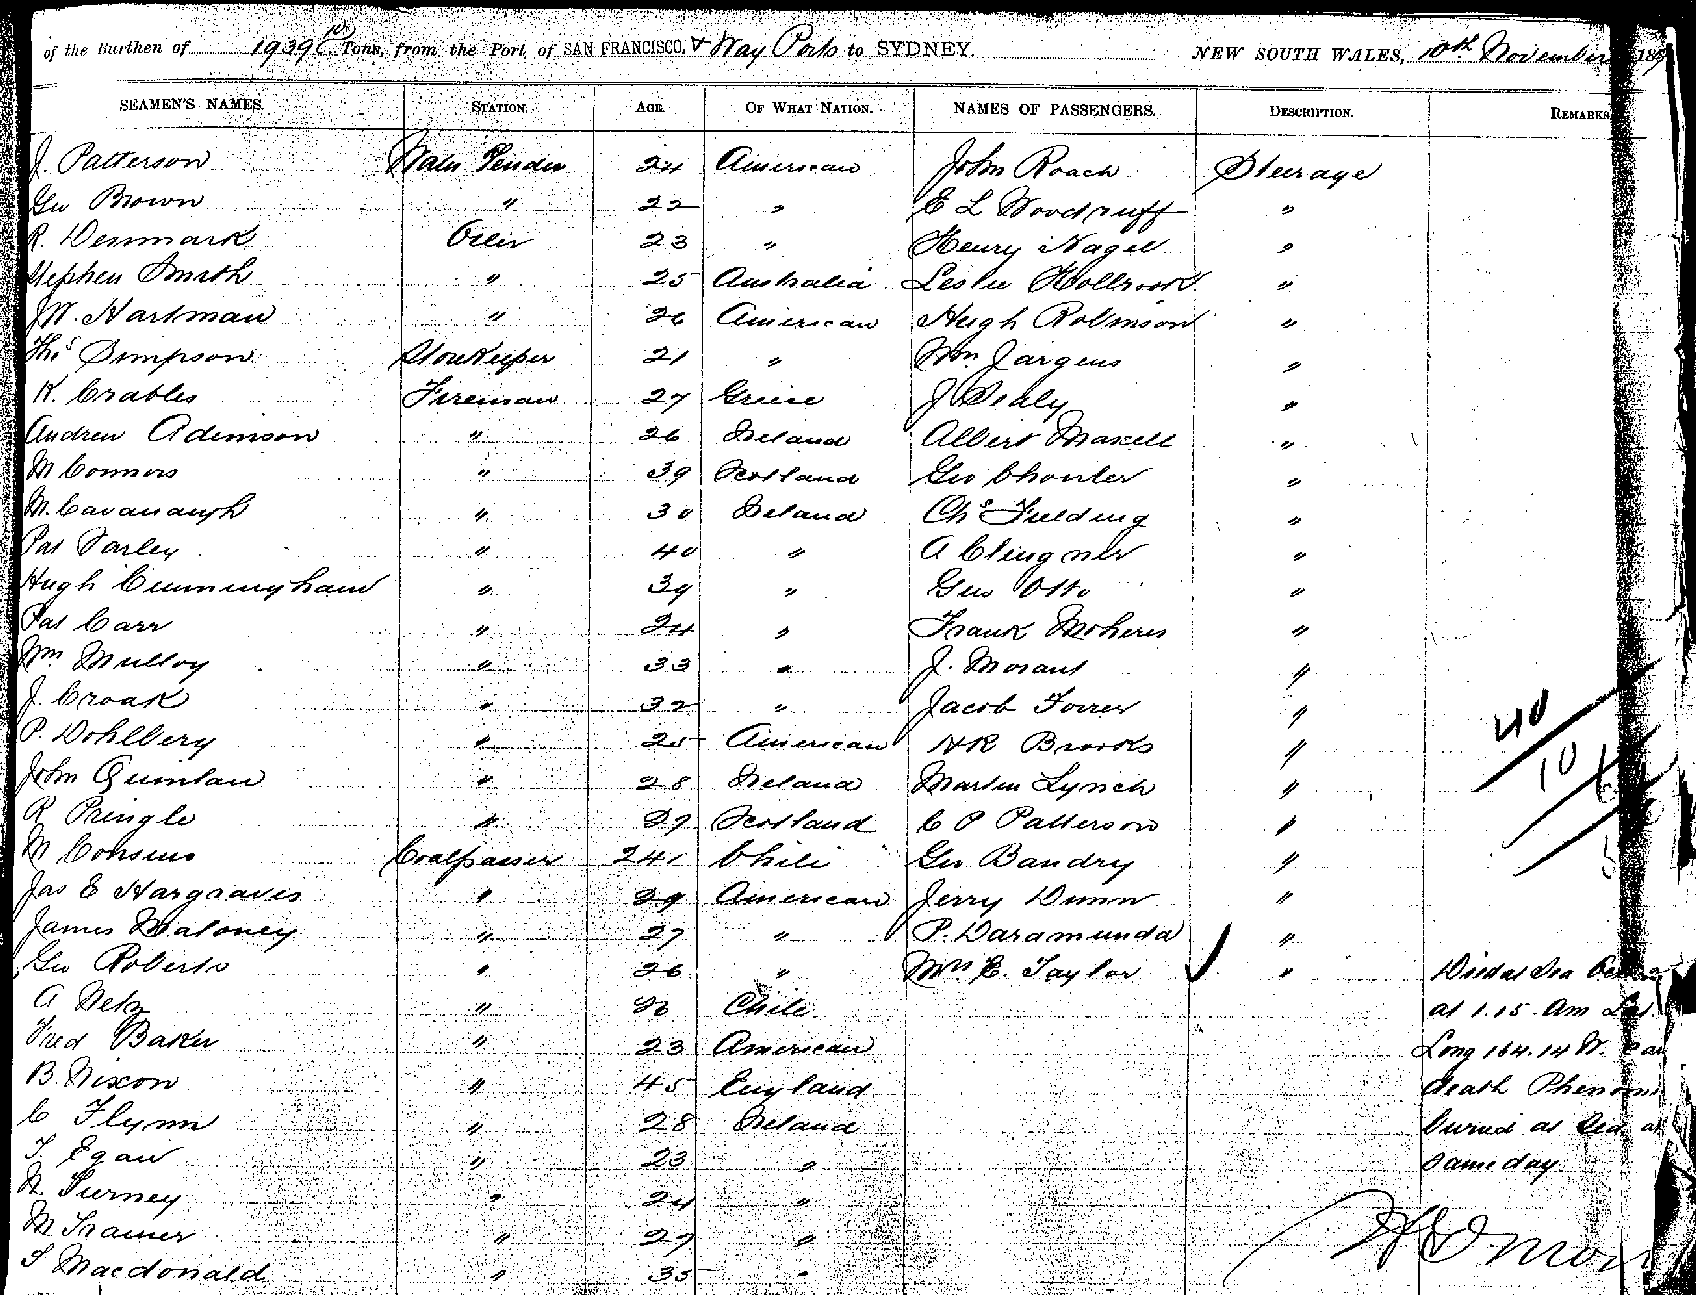 of the Burthen of 1939 Tons, from the Port of SAN FRANCISCO, & Way Ports to SYDNEY, NEW SOUTH WALES, 10th November 189
SEAMEN'S NAMES. STATION. AGE. OF WHAT NATION. NAMES OF PASSENGERS. DESCRIPTION. REMARKS
J. Patterson Water Tender 24 American John Roach Steerage
Geo Brown " 22 " E L Woodruff "
R. Denmark Oiler 23 " Henry Nagel "
Stephen Smith " 25 Australia Leslie Holbrook "
J W. Hartman " 26 American Hugh Robinson "
Thos Simpson Storekeeper 21 " Wm Jargens "
K. Crables Fireman 27 Greece J Dehly "
Andrew Adimson " 26 Ireland Albert Maxell "
M Connors " 39 Scotland Geo "
M. Cavanaugh " 30 Ireland Chs Fielding "
Pat Farley " 40 " A Clingner "
Hugh Cunningham " 39 " Geo Otto "
Pat Carr " 24 " Frank Moheres "
Wm Mulloy " 33 " J. Morant "
J. Croak " 32 " Jacob Forrer "
P. Dohlbery " 25 American H R Brooks "
John Quinlan " 28 Ireland Martin Lynch "
R Pringle " 29 Scotland C P Patterson "
M Cousens Coalpasser 24 Chili Geo Bandry "
Jas E Hargraaves " 29 American Jerry Dunn "
James Maloney " 27 " P. Daramunda "
Geo Roberts " 26 " Mrs E. Taylor " Died at Sea
A " Chile at 1.15 Am Lat.
Fred Baker " 23 American Long 164.14 W.
B. Nixon " 45 England death
C Flynn " 28 Ireland buried at Sea at
T. Egan " 23 " same day
N Turney " 24 "
M Tramer " 29 "
S Macdonald " 35 "
40
10